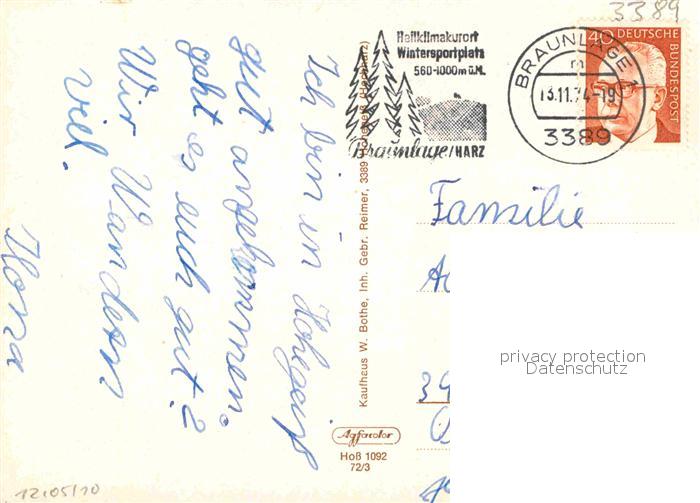 3389
Heilklimakurort
Wintersportplatz
560-1000m ü.M.
Braunlage/HARZ
BRAUNLAGE 1
m
13.11.74-19
3389
40 DEUTSCHE BUNDESPOST
Ich bin in Hohegeiß
gut angekommen.
geht es euch gut?
Wir Wandern
viel.
Ilona
Kaufhaus W. Bothe, Inh. Gebr. Reimer, 3389 Hohegeiß (Hochharz)
Agfacolor
Hoß 1092
72/3
Familie
privacy protection
Datenschutz
12/05/10